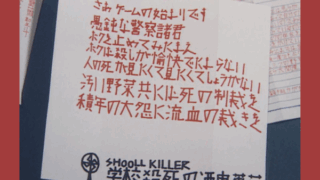 さあゲームの始まりです
愚鈍な警察諸君
ボクを止めてみたまえ
ボクは殺しが愉快でたまらない
人の死が見たくて見たくてしょうがない
汚い野菜共には死の制裁を
積年の大怨に流血の裁きを
SHOOLL KILLER
学校殺死の